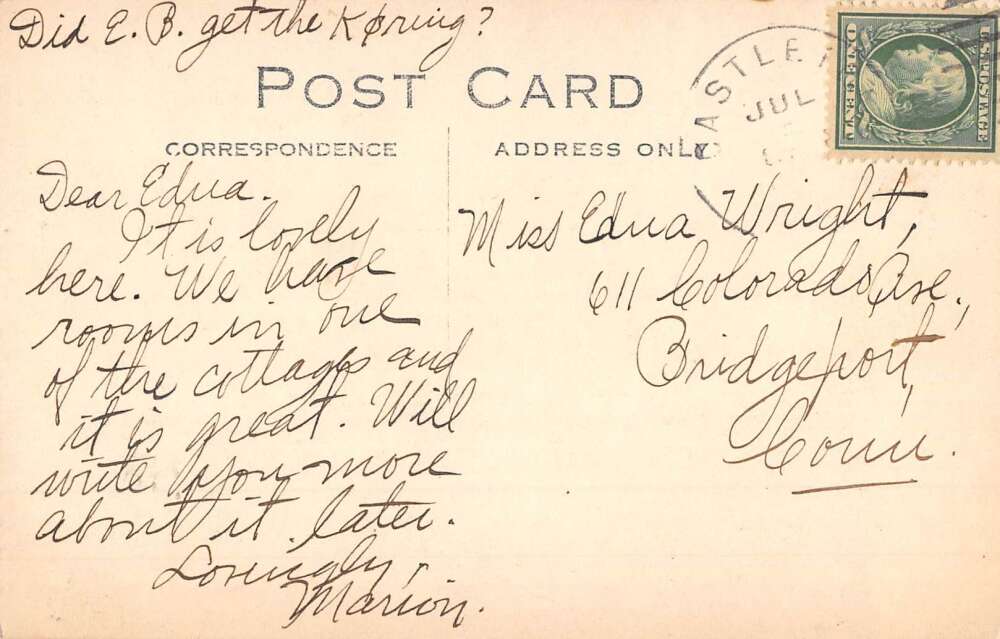 Did E. B. get the K φ ring?
POST CARD
CORRESPONDENCE
ADDRESS ONLY
Dear Edna.
It is lovely
here. We have
rooms in one
of the cottages and
it is great. Will
write you more
about it later.
Lovingly,
Marion.
Miss Edna Wright,
611 Colorado Ave.,
Bridgeport,
Conn.
JUL
U.S. POSTAGE
ONE CENT